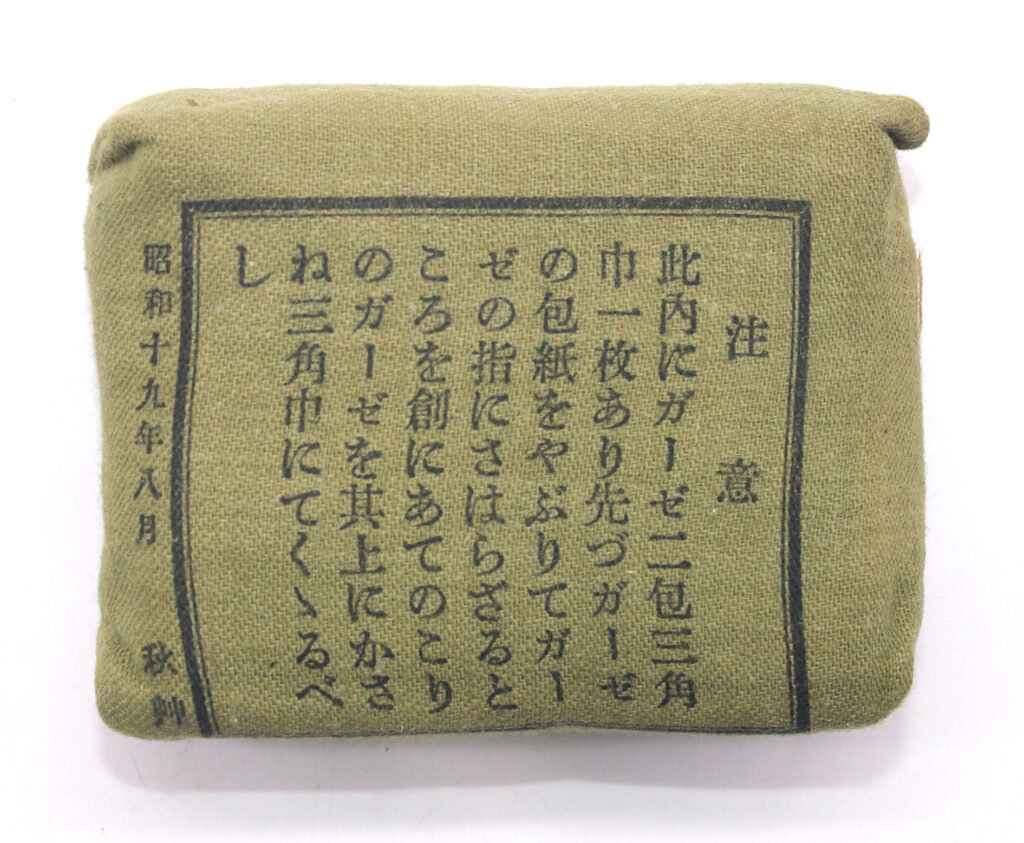 注意
此內にガーゼ二包三角
巾一枚あり先づガーゼ
の包紙をやぶりてガー
ゼの指にさはらざると
ころを創にあてのこり
のガーゼを其上にかさ
ね三角巾にてくゝるべ
し
昭和十九年八月 秋